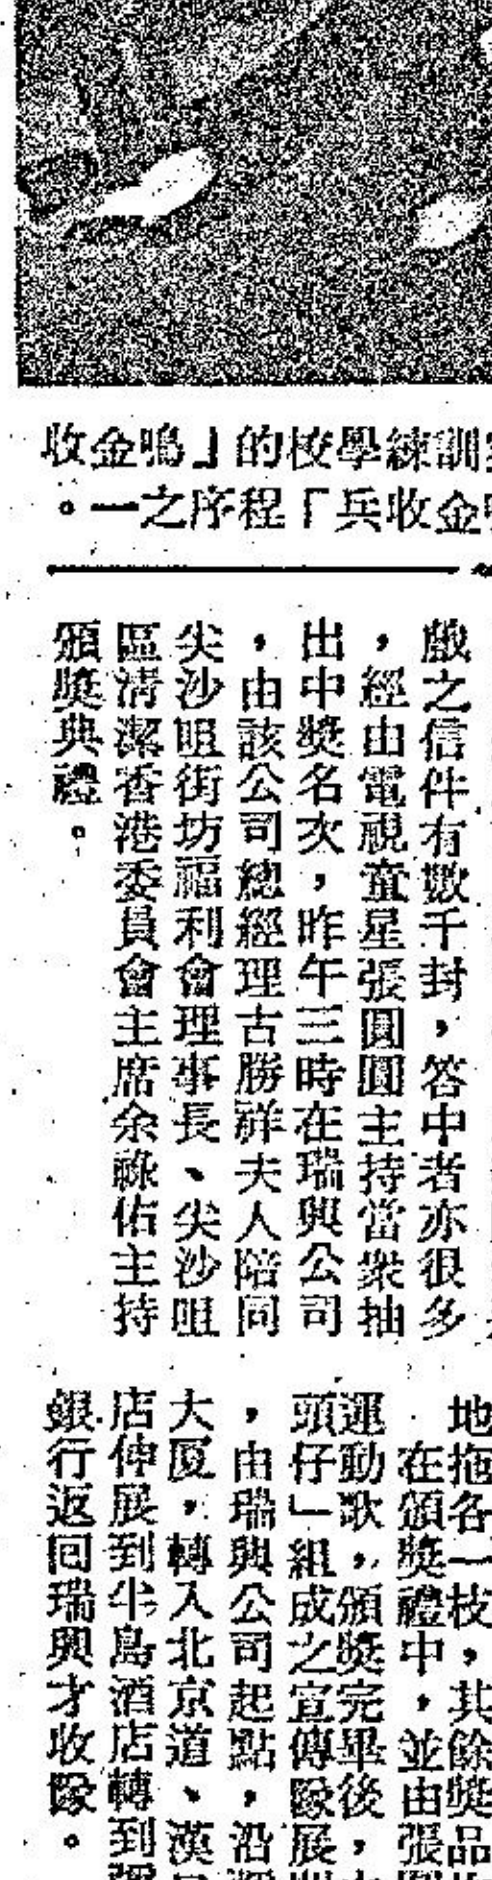 訓練學校的「鳴金收
金收兵」程序之一。
戲之信件有數千封，答中者亦很多
，經由電視童星張圓圓主持當衆抽
出中獎名次，昨午三時在瑞興公司
，由該公司總經理古勝祥夫人陪同
尖沙咀街坊福利會理事長、尖沙咀
區清潔香港委員會主席余祿佑主持
頒獎典禮。
地拖各一枝，其餘獎品
在頒獎禮中，並由張
運動歌，頒獎完畢後，
頭仔」組成之宣傳隊展
，由瑞興公司起點，沿
大厦，轉入北京道、漢
店伸展到半島酒店轉到
銀行返回瑞興才收隊。